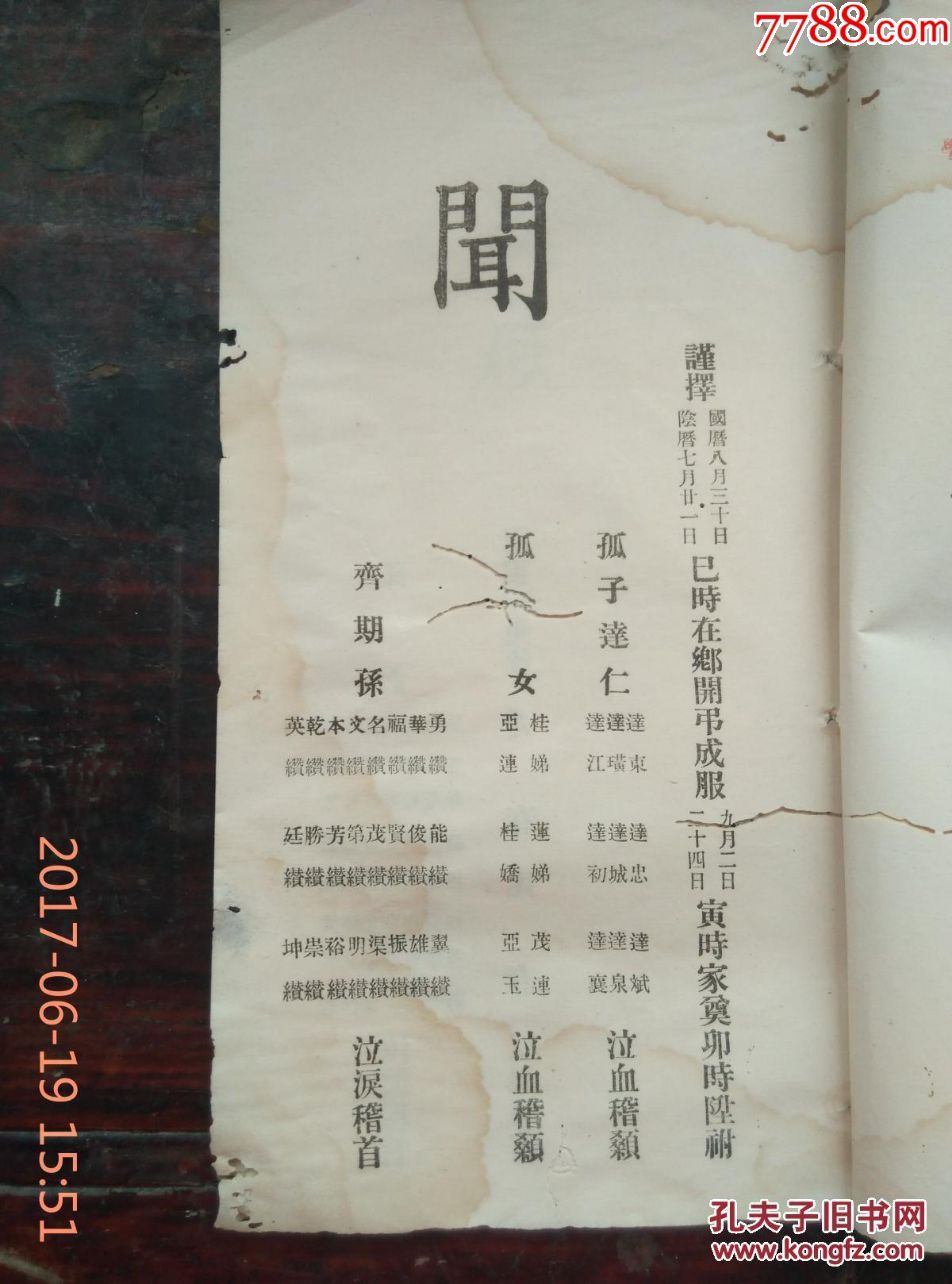 7788.com
聞
謹擇
國曆八月三十日
陰曆七月廿一日
巳時在鄉開弔成服
九月二日
二十四日
寅時家奠卯時陞祔
孤子達仁
達東 達忠 達斌
達璜 達城 達泉
達江 達初 達襄
泣血稽顙
孤女
桂娣 蓮娣 茂連
亞連 桂嬌 亞玉
泣血稽顙
齊期孫
勇纘 能纘 翼纘
華纘 俊纘 雄纘
福纘 賢纘 振纘
名纘 茂纘 渠纘
文纘 第纘 明纘
本纘 芳纘 裕纘
乾纘 勝纘 崇纘
英纘 廷纘 坤纘
泣淚稽首
2017-06-19 15:51
孔夫子旧书网
www.kongfz.com